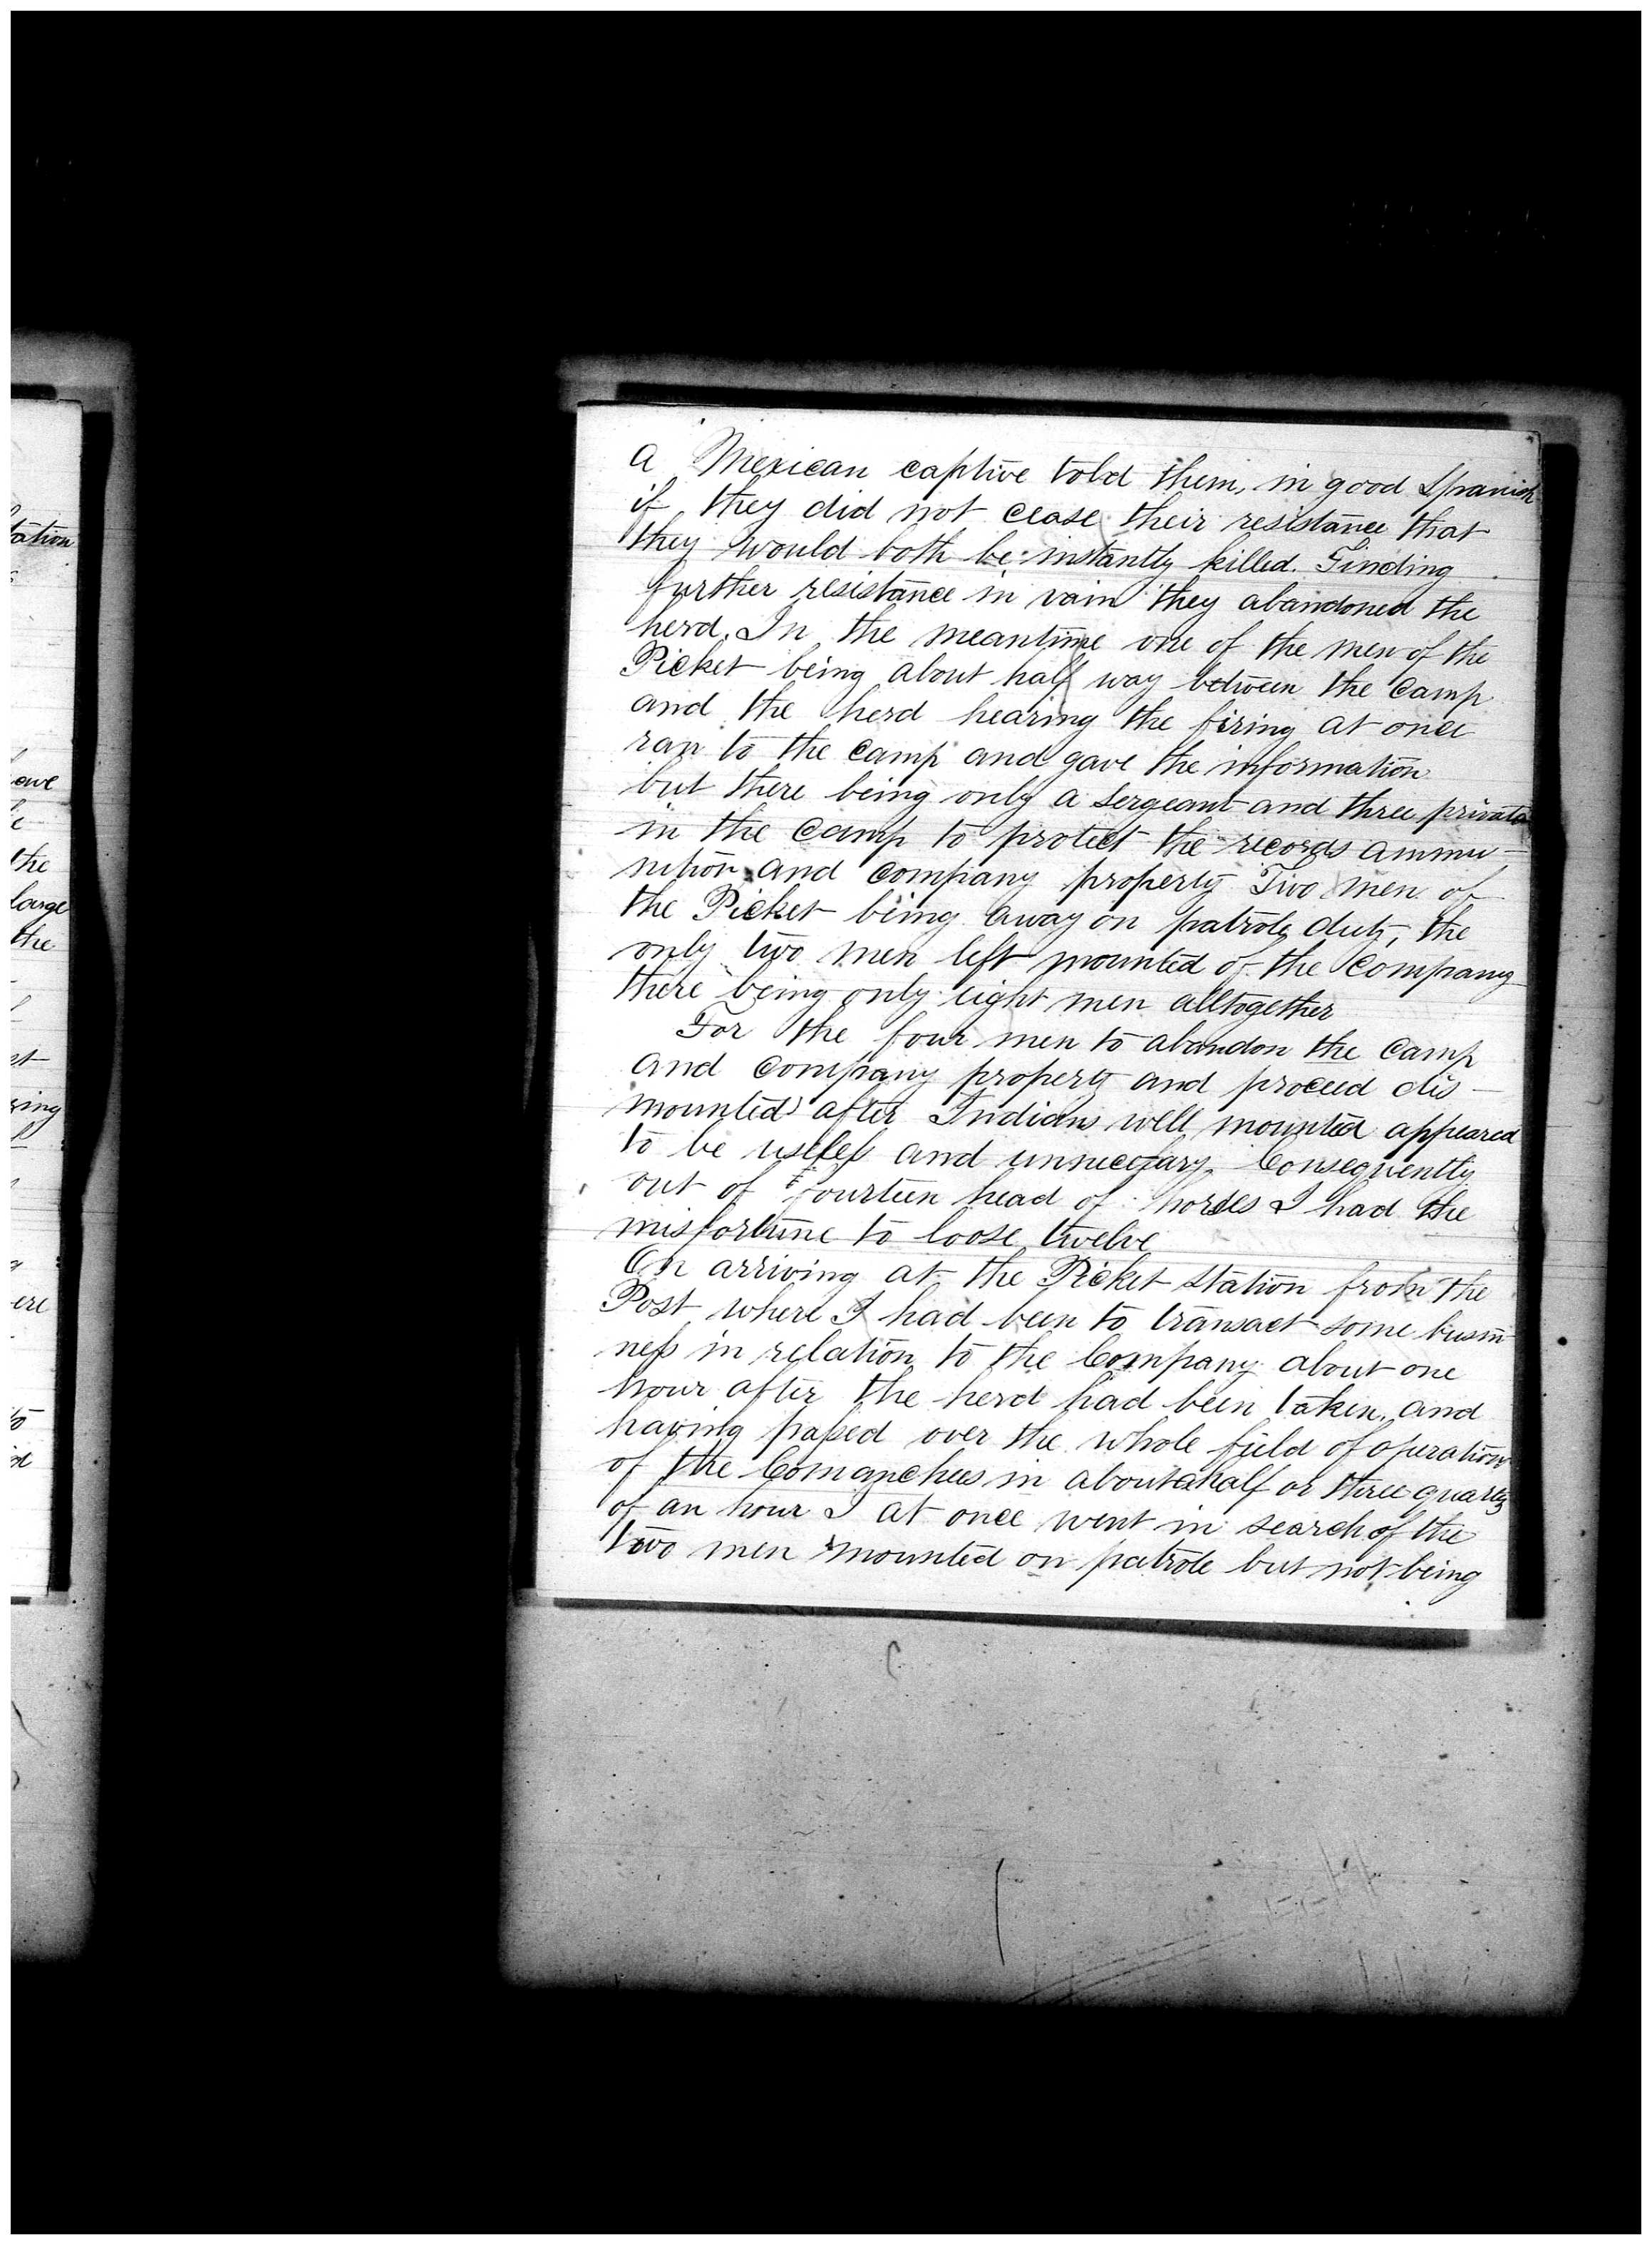 a Mexican captive told them, in good Spanish
if they did not cease their resistance that
they would both be instantly killed. Finding
further resistance in vain they abandoned the
herd. In the meantime one of the men of the
Picket being about half way between the Camp
and the herd hearing the firing at once
ran to the Camp and gave the information
but there being only a Sergeant and three privates
in the Camp to protect the records ammu-
nition and company property Two men of
the Picket being away on patrole duty, the
only two men left mounted of the Company
there being only eight men alltogether
For the four men to abandon the Camp
and company property and proceed dis-
mounted after Indians well mounted appeared
to be useless and unnecessary. Consequently
out of fourteen head of horses I had the
misfortune to loose twelve
On arriving at the Picket Station from the
Post where I had been to transact some busin-
ness in relation to the Company about one
hour after the herd had been taken, and
having passed over the whole field of operations
of the Comanchees in about a half or three quarters
of an hour I at once went in search of the
two men mounted on patrole but not being
tation
the
large
the
ere